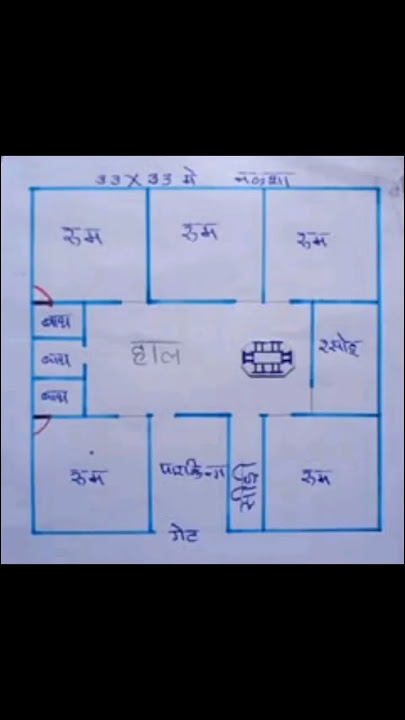 33X33 में नक्शा
रुम
रुम
रुम
बाथ
बाथ
बाथ
हाल
रसोई
रुम
पार्किंग
सीढ़ी
रुम
गेट